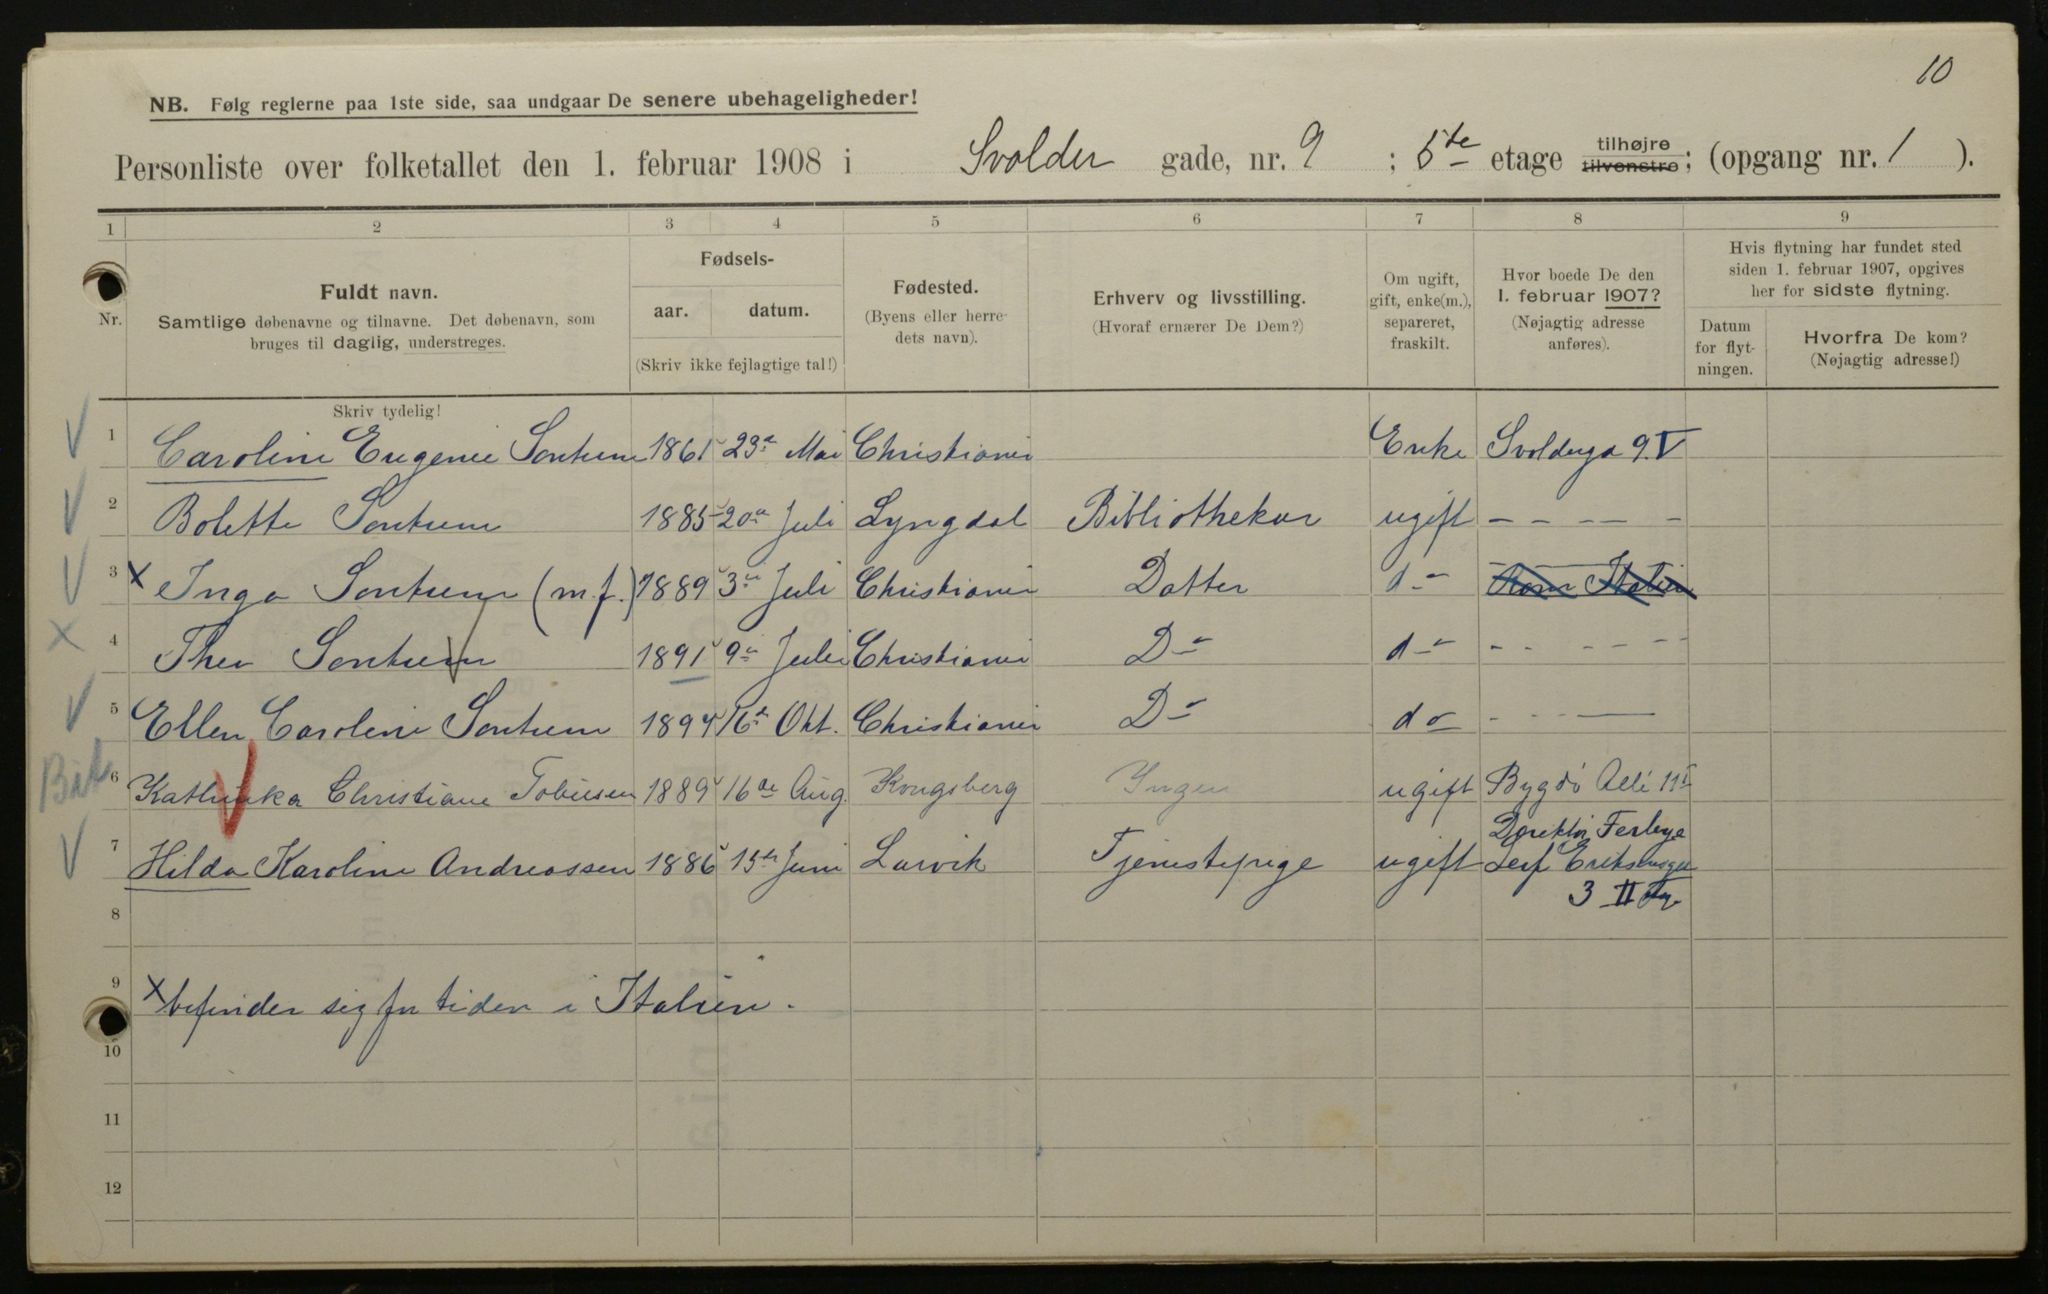 10
NB. Følg reglerne paa 1ste side, saa undgaar De senere ubehageligheder!
Personliste over folketallet den 1. februar 1908 i Svolder gade, nr. 9 ; 5te etage tilhøjre tilvenstre; (opgang nr. 1 ).
1 2 3 4 5 6 7 8 9
Nr.
Fuldt navn.
Samtlige døbenavne og tilnavne. Det døbenavn, som
bruges til daglig, understreges.
Fødsels-
aar. datum.
(Skriv ikke fejlagtige tal!)
Fødested.
(Byens eller herre-
dets navn).
Erhverv og livsstilling.
(Hvoraf ernærer De Dem?)
Om ugift,
gift, enke(m.),
separeret,
fraskilt.
Hvor boede De den
1. februar 1907?
(Nøjagtig adresse
anføres).
Hvis flytning har fundet sted
siden 1. februar 1907, opgives
her for sidste flytning.
Datum
for flyt-
ningen.
Hvorfra De kom?
(Nøjagtig adresse!)
Skriv tydelig!
1 Caroline Eugenie Sontum 1861 23de Mai Christiania Enke Svolderga 9.V
2 Bolette Sontum 1885 20de Juli Lyngdal Bibliothekar ugift - - - - -
3 x Inga Sontum (m.f.) 1889 3de Juli Christiania Datter do Rom Italien
4 Thea Sontum 1891 9de Juli Christiania Do do - - - - - -
5 Ellen Caroline Sontum 1894 16de Okt. Christiania Do do - - -
6 Kathinka Christiane Tobiesen 1889 16de Aug. Kongsberg Ingen ugift Bygdö Allé 11
Direktör Ferlege
7 Hilda Karoline Andreassen 1886 15de Juni Larvik Tjenestepige ugift Leif Eriksensga
3 II
8
9 x befinder sig for tiden i Italien.
10
11
12